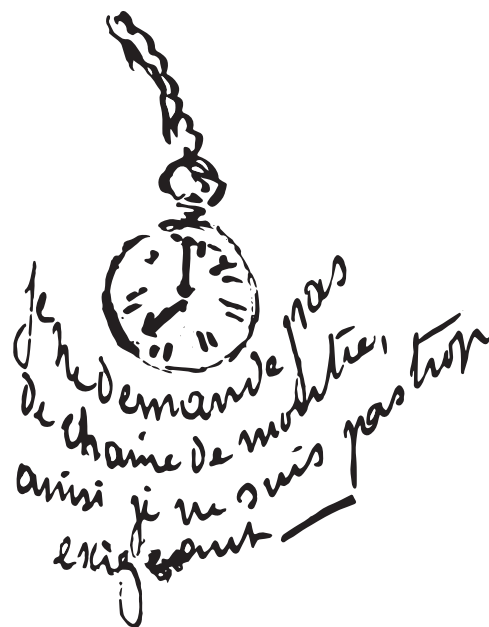 je ne demande pas
de chaine de montre,
ainsi je ne suis pas trop
exigeant